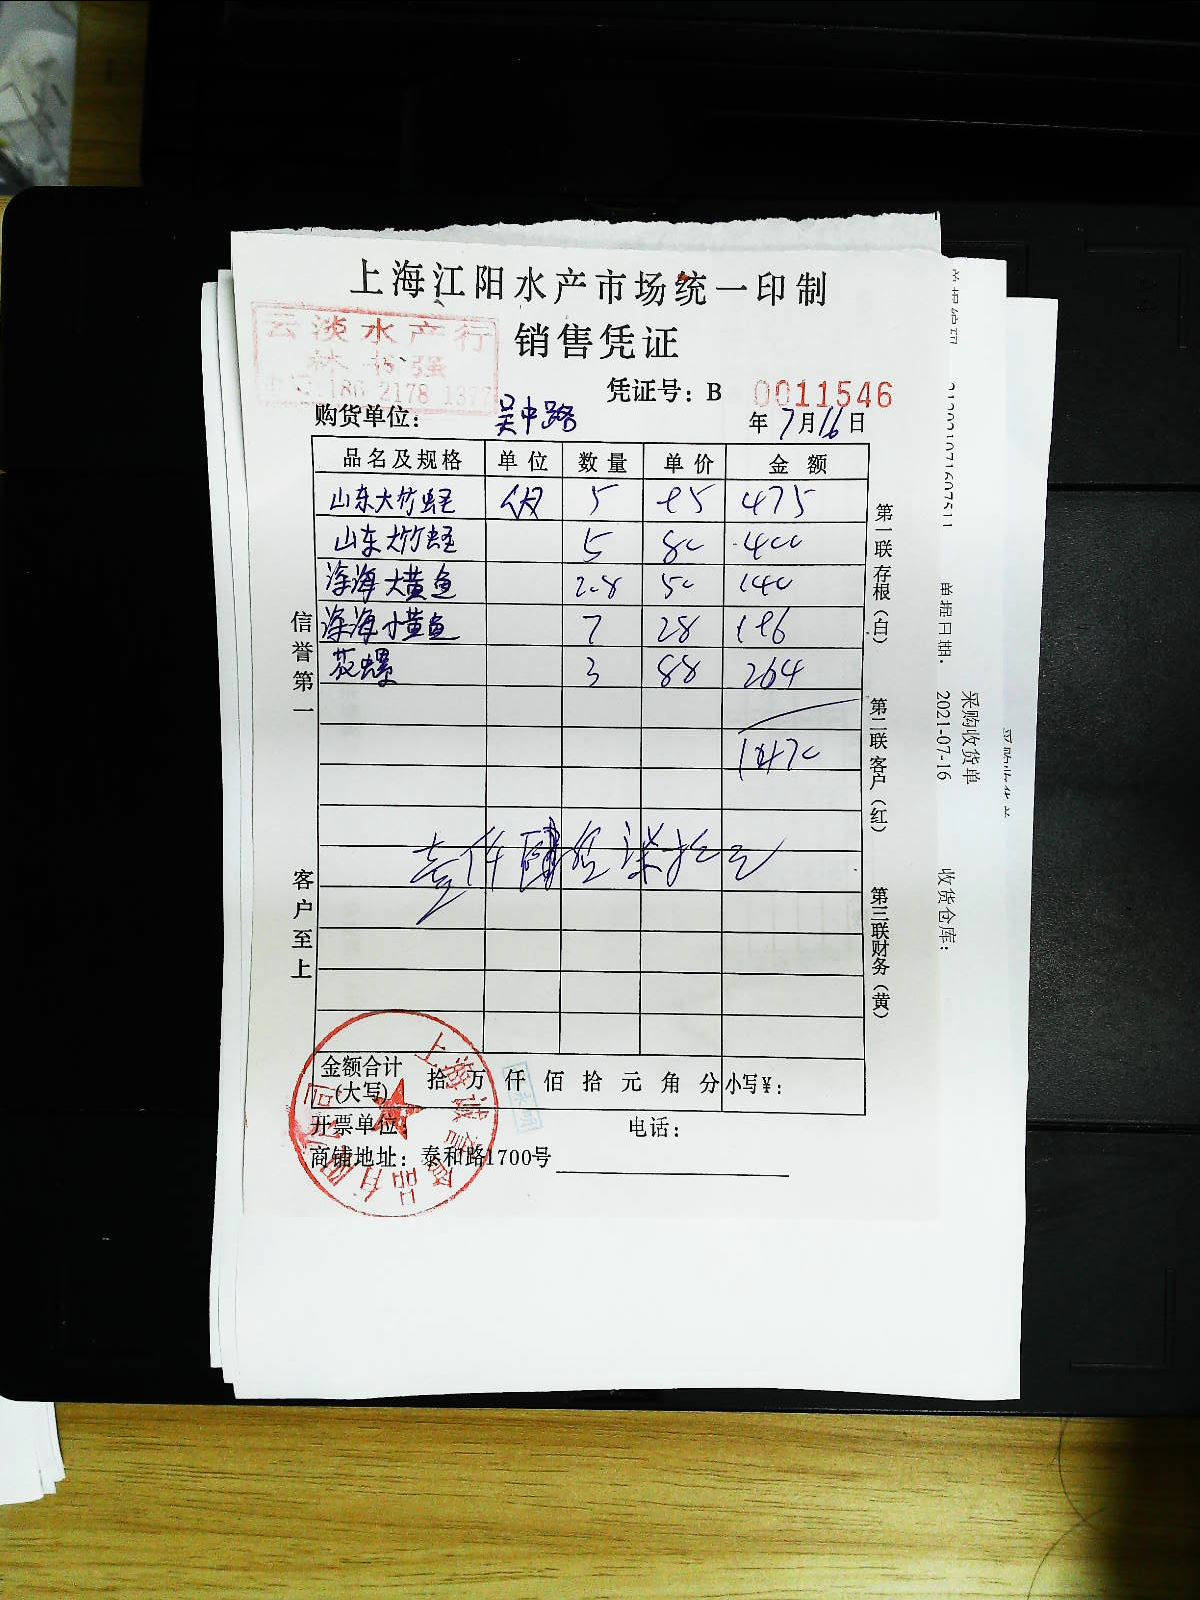 上海江阳水产市场统一印制
云淡水产行
销售凭证
186 2178 1377
凭证号：B 0011546
购货单位： 吴中路 年 7 月 16 日
品名及规格 单位 数量 单价 金额
山东大竹蛏 5 95 475
山东大竹蛏 5 80 400
深海大黄鱼 2.8 50 140
深海小黄鱼 7 28 196
花螺 3 88 264
1470
壹仟肆佰柒拾元
金额合计(大写) 拾 万 仟 佰 拾 元 角 分 小写￥：
开票单位： 电话：
商铺地址：泰和路1700号
信誉第一
客户至上
第一联存根（白）
第二联客户（红）
第三联财务（黄）
上海诚誉食品有限公司
单据日期：
2021-07-16
采购收货单
收货仓库：